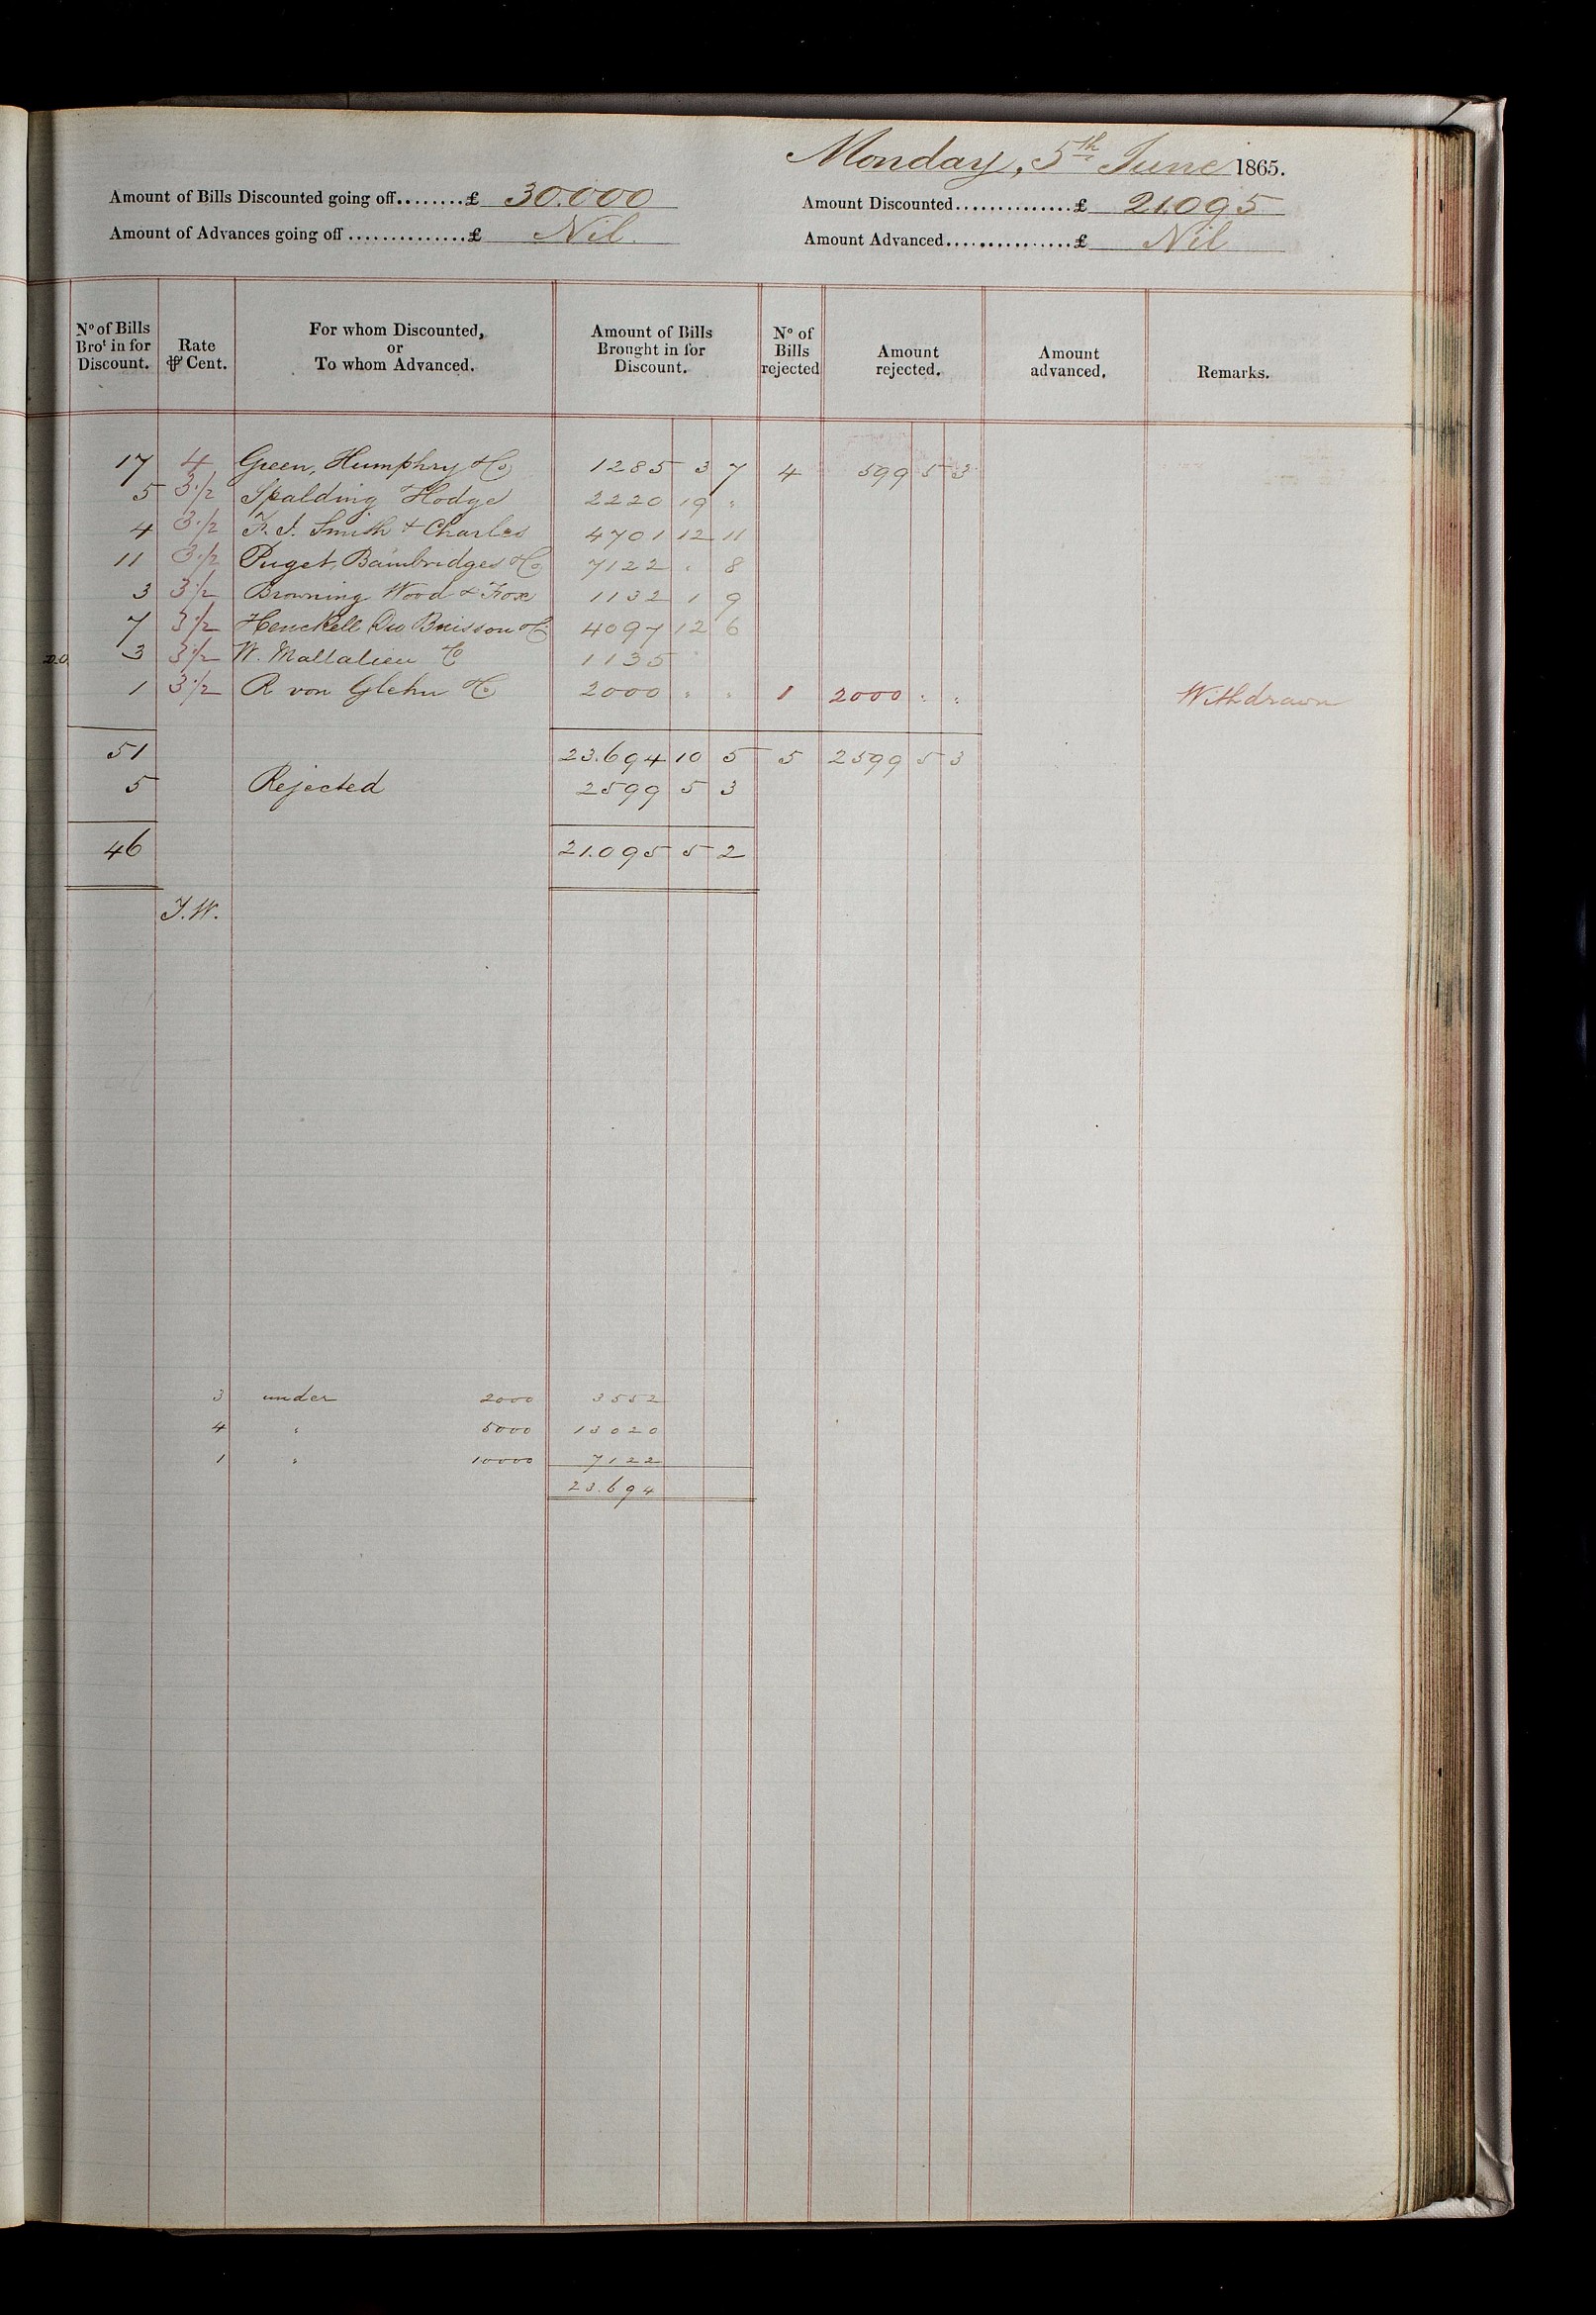 Monday, 5th June 1865.
Amount of Bills Discounted going off........£ 30.000
Amount Discounted..............£ 21.095
Amount of Advances going off..............£ Nil.
Amount Advanced...............£ Nil
No of Bills Brot in for Discount. Rate ⅌ Cent. For whom Discounted, or To whom Advanced. Amount of Bills Brought in for Discount. No of Bills rejected Amount rejected. Amount advanced. Remarks.
17 4 Green, Humphry & Co 1285 3 7 4 599 5 3
5 3 1/2 Spalding Hodge 2220 19 "
4 3 1/2 F. J. Smith & Charles 4701 12 11
11 3 1/2 Puget, Bainbridges & Co 7122 " 8
3 3 1/2 Browning Wood & Fox 1132 1 9
7 3 1/2 Henckell Du Buisson & Co 4097 12 6
D.O. 3 3 1/2 W. Mallalieu & Co 1135
1 3 1/2 R von Glehn & Co 2000 " " 1 2000 " " Withdrawn
51 23.694 10 5 5 2599 5 3
5 Rejected 2599 5 3
46 21.095 5 2
J.W.
3 under 2000 3552
4 " 5000 13020
1 " 10000 7122
23.694